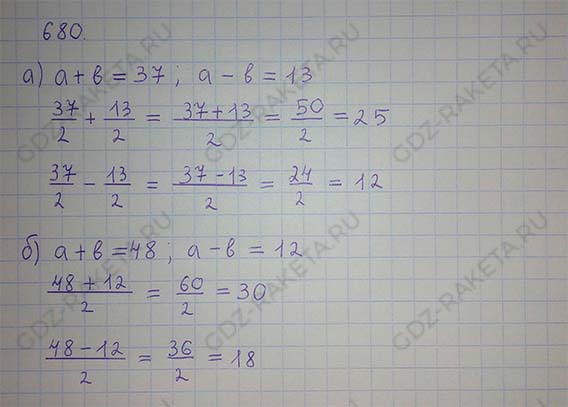 680.
а) a + b = 37 ; a - b = 13
37/2 + 13/2 = (37+13)/2 = 50/2 = 25
37/2 - 13/2 = (37-13)/2 = 24/2 = 12
б) a + b = 48 ; a - b = 12
(48+12)/2 = 60/2 = 30
(48-12)/2 = 36/2 = 18
GDZ-RAKETA.RU
GDZ-RAKETA.RU
GDZ-RAKETA.RU
GDZ-RAKETA.RU
GDZ-RAKETA.RU
GDZ-RAKETA.RU
GDZ-RAKETA.RU
GDZ-RAKETA.RU
GDZ-RAKETA.RU